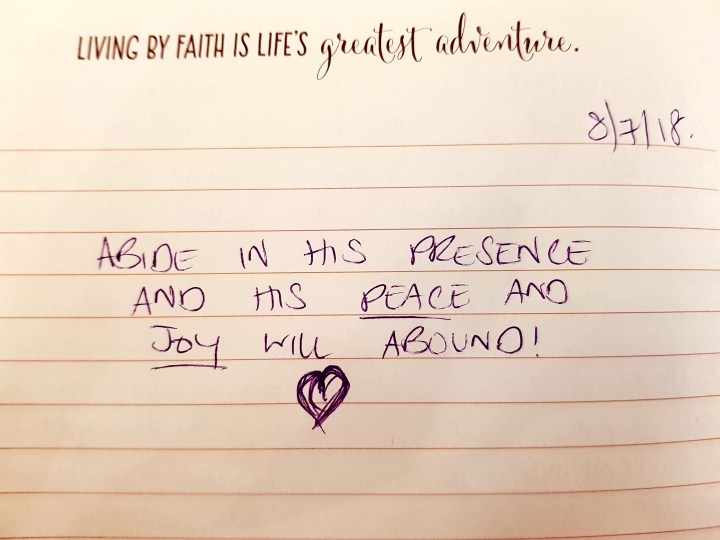 LIVING BY FAITH IS LIFE'S greatest adventure.
8/7/18.
ABIDE IN HIS PRESENCE
AND HIS PEACE AND
JOY WILL ABOUND!